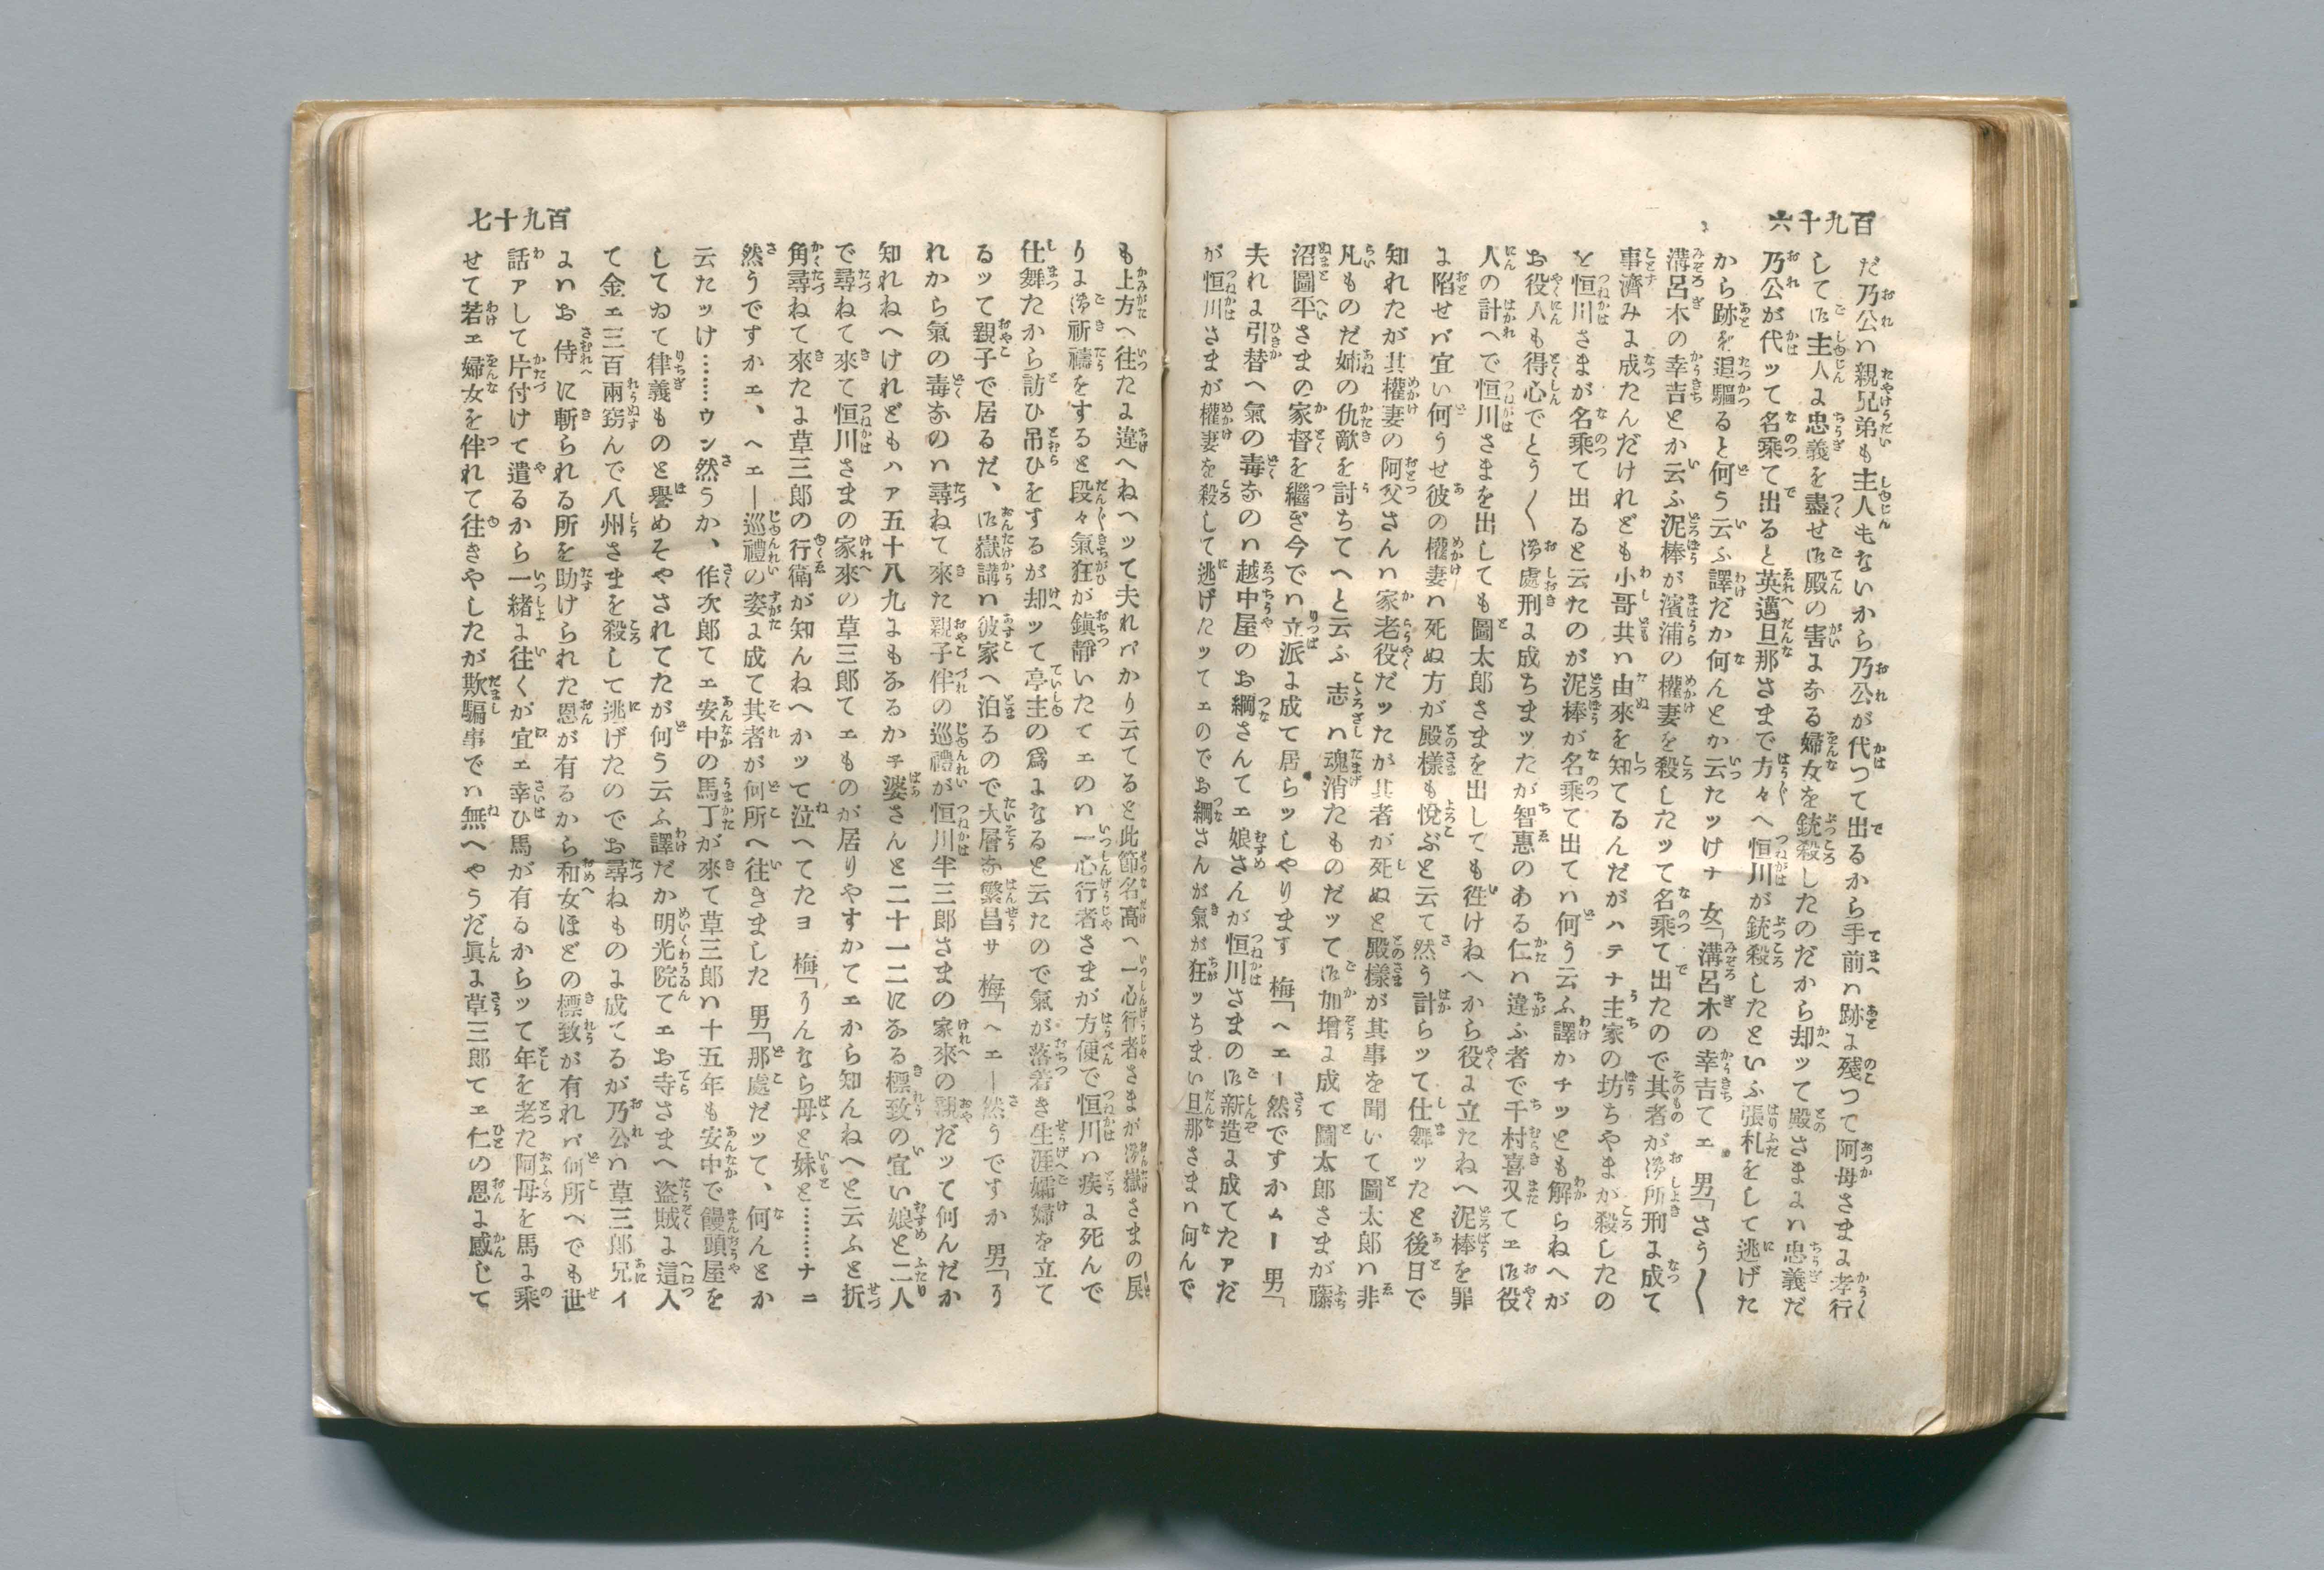 百九十六
だ乃公ハ親兄弟も主人もないから乃公が代つて出るから手前ハ跡に殘つて阿母さまに孝行
して御主人に忠義を盡せ御殿の害になる婦女を銃殺したのだから却ッて殿さまにハ忠義だ
乃公が代ッて名乘て出ると英邁旦那さまで方々へ恒川が銃殺したといふ張札をして逃げた
から跡を追驅ると何う云ふ譯だか何んとか云たッけナ 女「溝呂木の幸吉てエ 男「さう〱
溝呂木の幸吉とか云ふ泥棒が濱浦の權妻を殺したッて名乘て出たので其者が御所刑に成て
事濟みに成たんだけれども小哥共ハ由來を知てるんだがハテナ主家の坊ちやまが殺したの
を恒川さまが名乘て出ると云たのが泥棒が名乘て出てハ何う云ふ譯かチッとも解らねへが
お役人も得心でとう〱御處刑に成ちまッたが智惠のある仁ハ違ふ者で千村喜又てエ御役
人の計へで恒川さまを出しても圖太郎さまを出しても徃けねへから役に立たねへ泥棒を罪
に陷せバ宜い何うせ彼の權妻ハ死ぬ方が殿樣も悅ぶと云て然う計らッて仕舞ッたと後日で
知れたが其權妻の阿父さんハ家老役だッたが其者が死ぬと殿樣が其事を聞いて圖太郎ハ非
凡ものだ姉の仇敵を討ちてへと云ふ志ハ魂消たものだッて御加增に成て圖太郎さまが藤
沼圖平さまの家督を繼ぎ今でハ立派に成て居らッしやります 梅「ヘエー然ですかムー 男「
夫れに引替へ氣の毒なのハ越中屋のお綱さんてエ娘さんが恒川さまの御新造に成てたアだ
が恒川さまが權妻を殺して逃げたッてエのでお綱さんが氣が狂ッちまい旦那さまハ何んで
百九十七
も上方へ徃た に違へねヘッて夫れバかり云てると此節名高へ一心行者さまが御嶽さまの戾
りに御祈禱をすると段々氣狂が鎭靜いたてエのハ一心行者さまが方便で恒川ハ疾に死んで
仕舞たから訪ひ吊ひをするが却ッて亭主の爲になると云たので氣が落着き生涯孀婦を立て
るッて親子で居るだ、御嶽講ハ彼家へ泊るので大層な繁昌サ 梅「ヘエー然うですか 男「う
れから氣の毒なのハ尋ねて來た親子伴の巡禮が恒川半三郎さまの家來の親だッて何んだか
知れねへけれどもハア五十八九にもなるかチ婆さんと二十一二になる標致の宜い娘と二人
で尋ねて來て恒川さまの家來の草三郎てエものが居りやすかてエから知んねへと云ふと折
角尋ねて來たに草三郎の行衛が知んねへかッて泣へてたヨ 梅「うんなら母と妹と………ナニ
然うですかエ、ヘエー巡禮の姿に成て其者が何所へ徃きました 男「那處だッて、何んとか
云たッけ……ウン然うか、作次郎てエ安中の馬丁が來て草三郎ハ十五年も安中で饅頭屋を
してゐて律義ものと譽めそやされてたが何う云ふ譯だか明光院てエお寺さまへ盜賊に這入
て金エ三百兩窃んで八州さまを殺して逃げたのでお尋ねものに成てるが乃公ハ草三郞兄イ
にハお侍に斬られる所を助けられた恩が有るから和女ほどの標致が有れバ何所へでも世
話アして片付けて遣るから一緖に徃くが宜エ幸ひ馬が有るからッて年を老た阿母を馬に乘
せて若エ婦女を伴れて徃きやしたが欺騙事でハ無へやうだ眞に草三郎てエ仁の恩に感じて